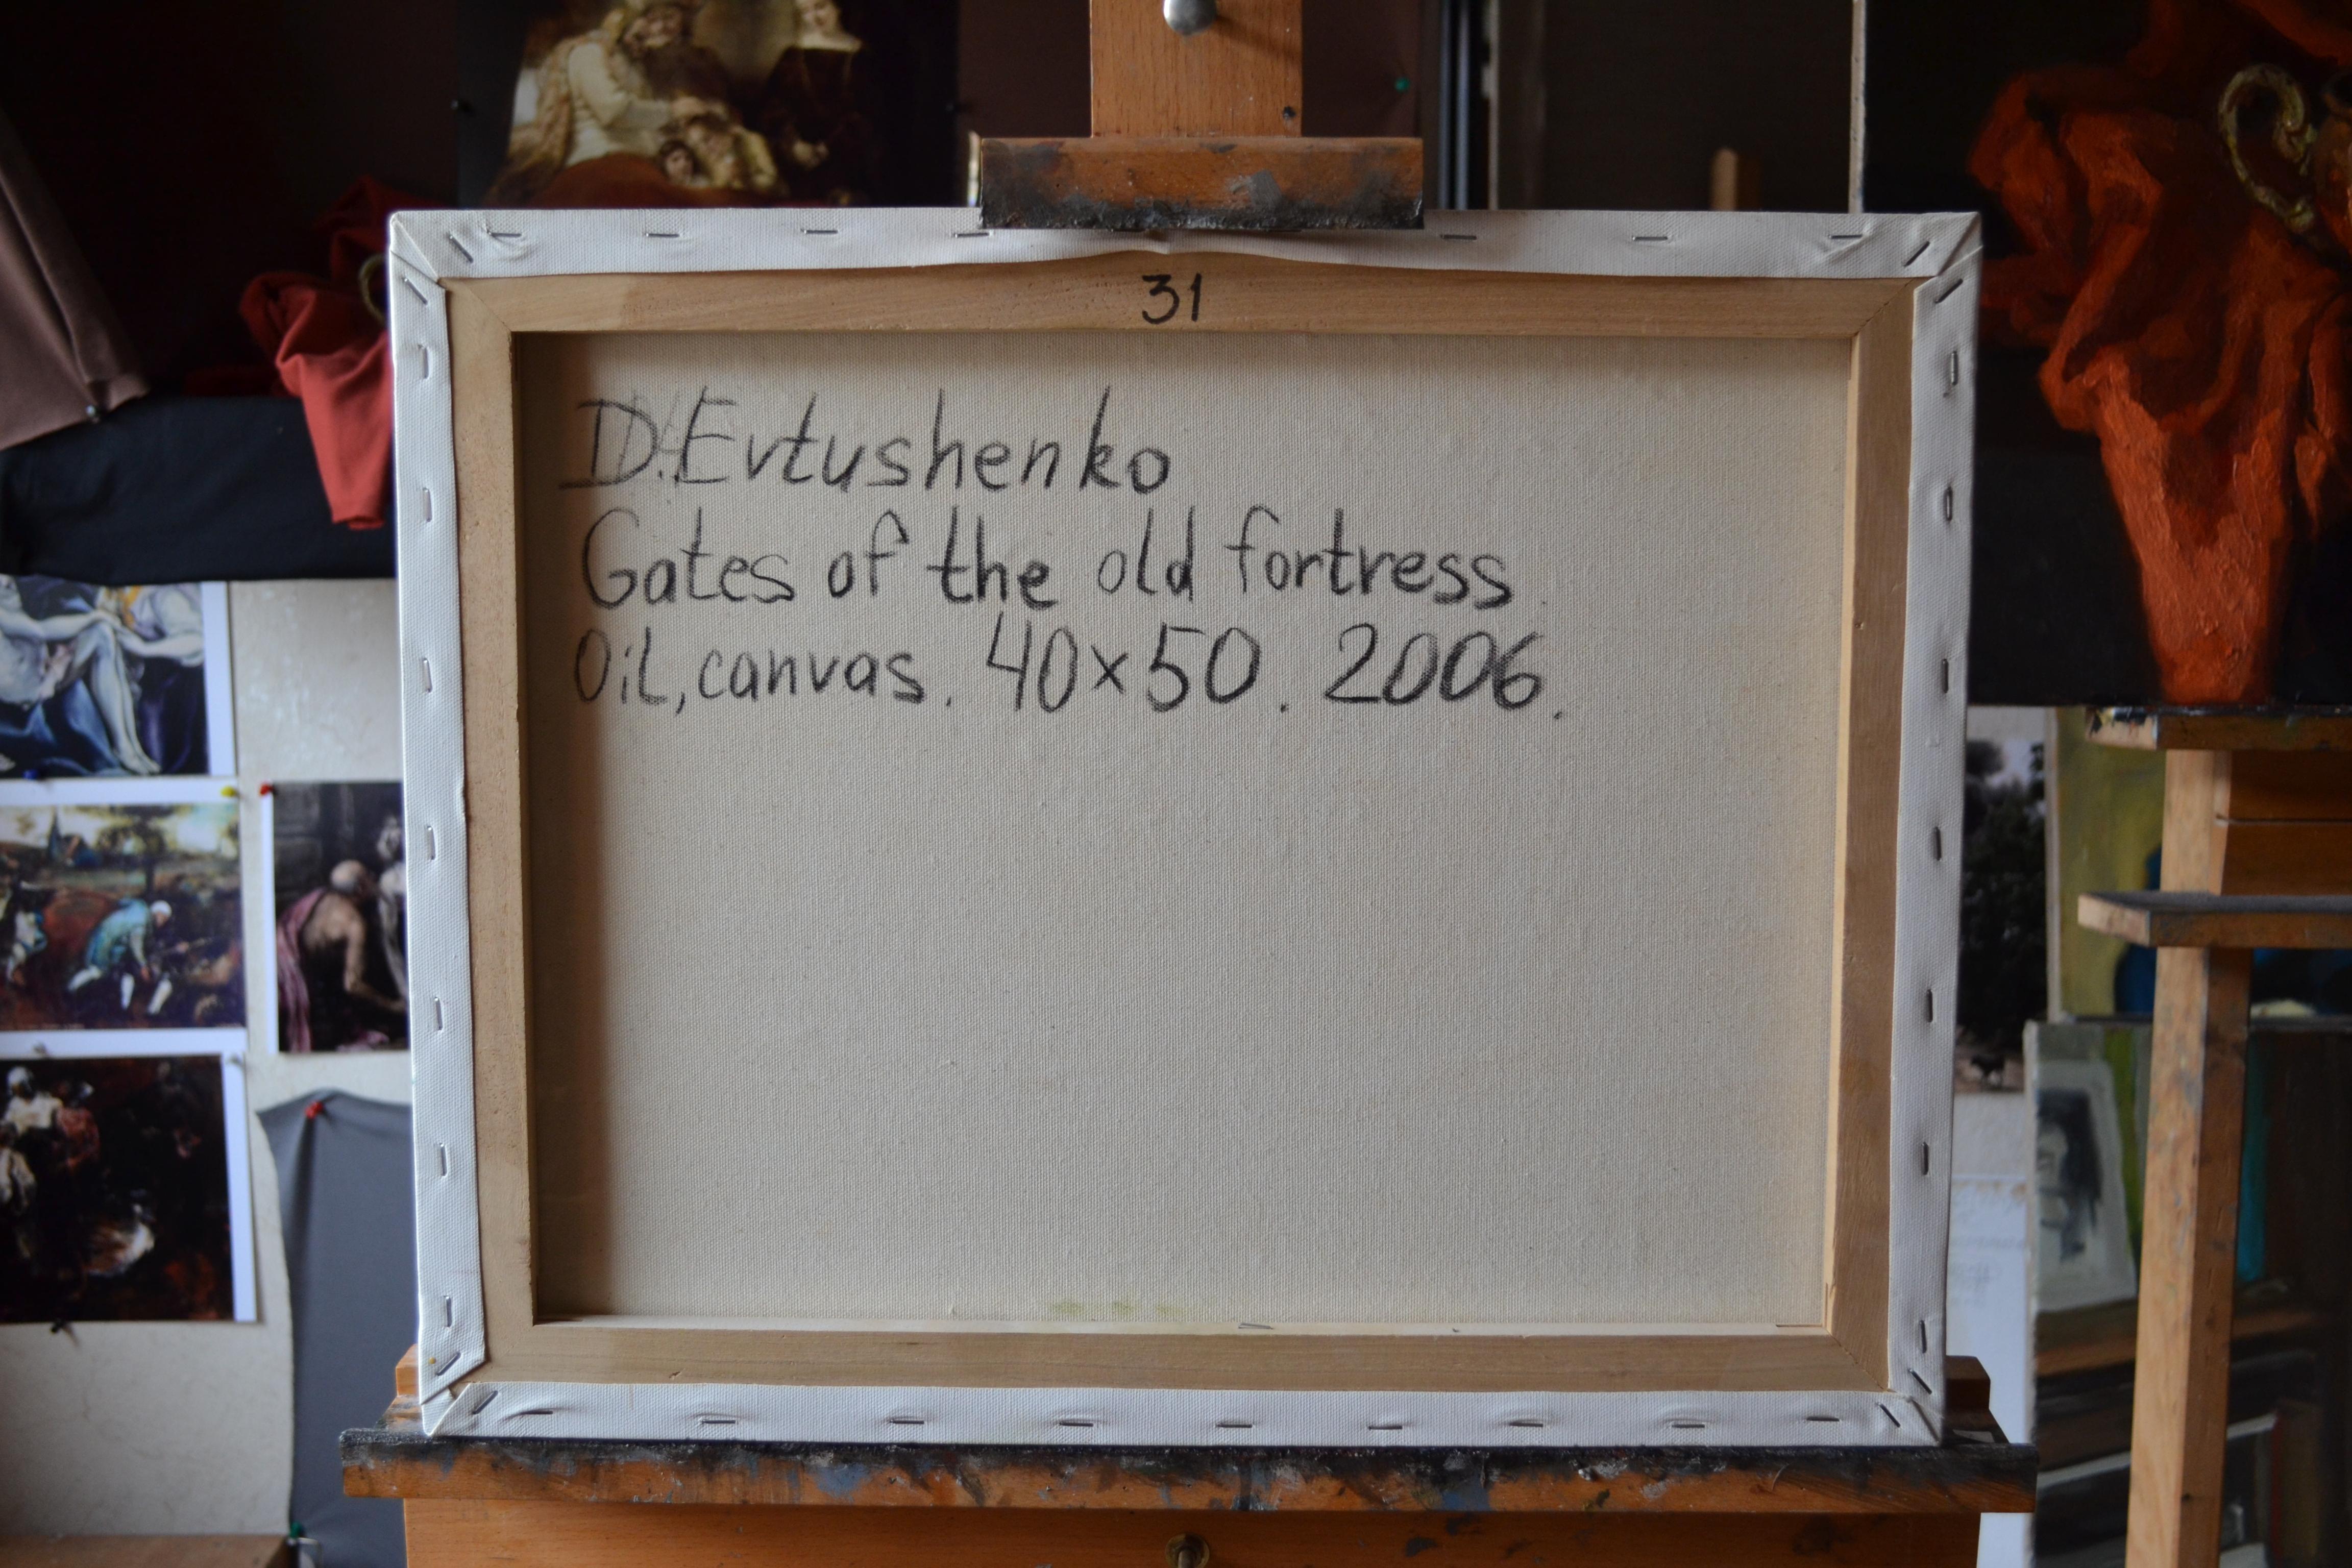 31
D.Evtushenko
Gates of the old fortress.
Oil, canvas. 40×50. 2006.